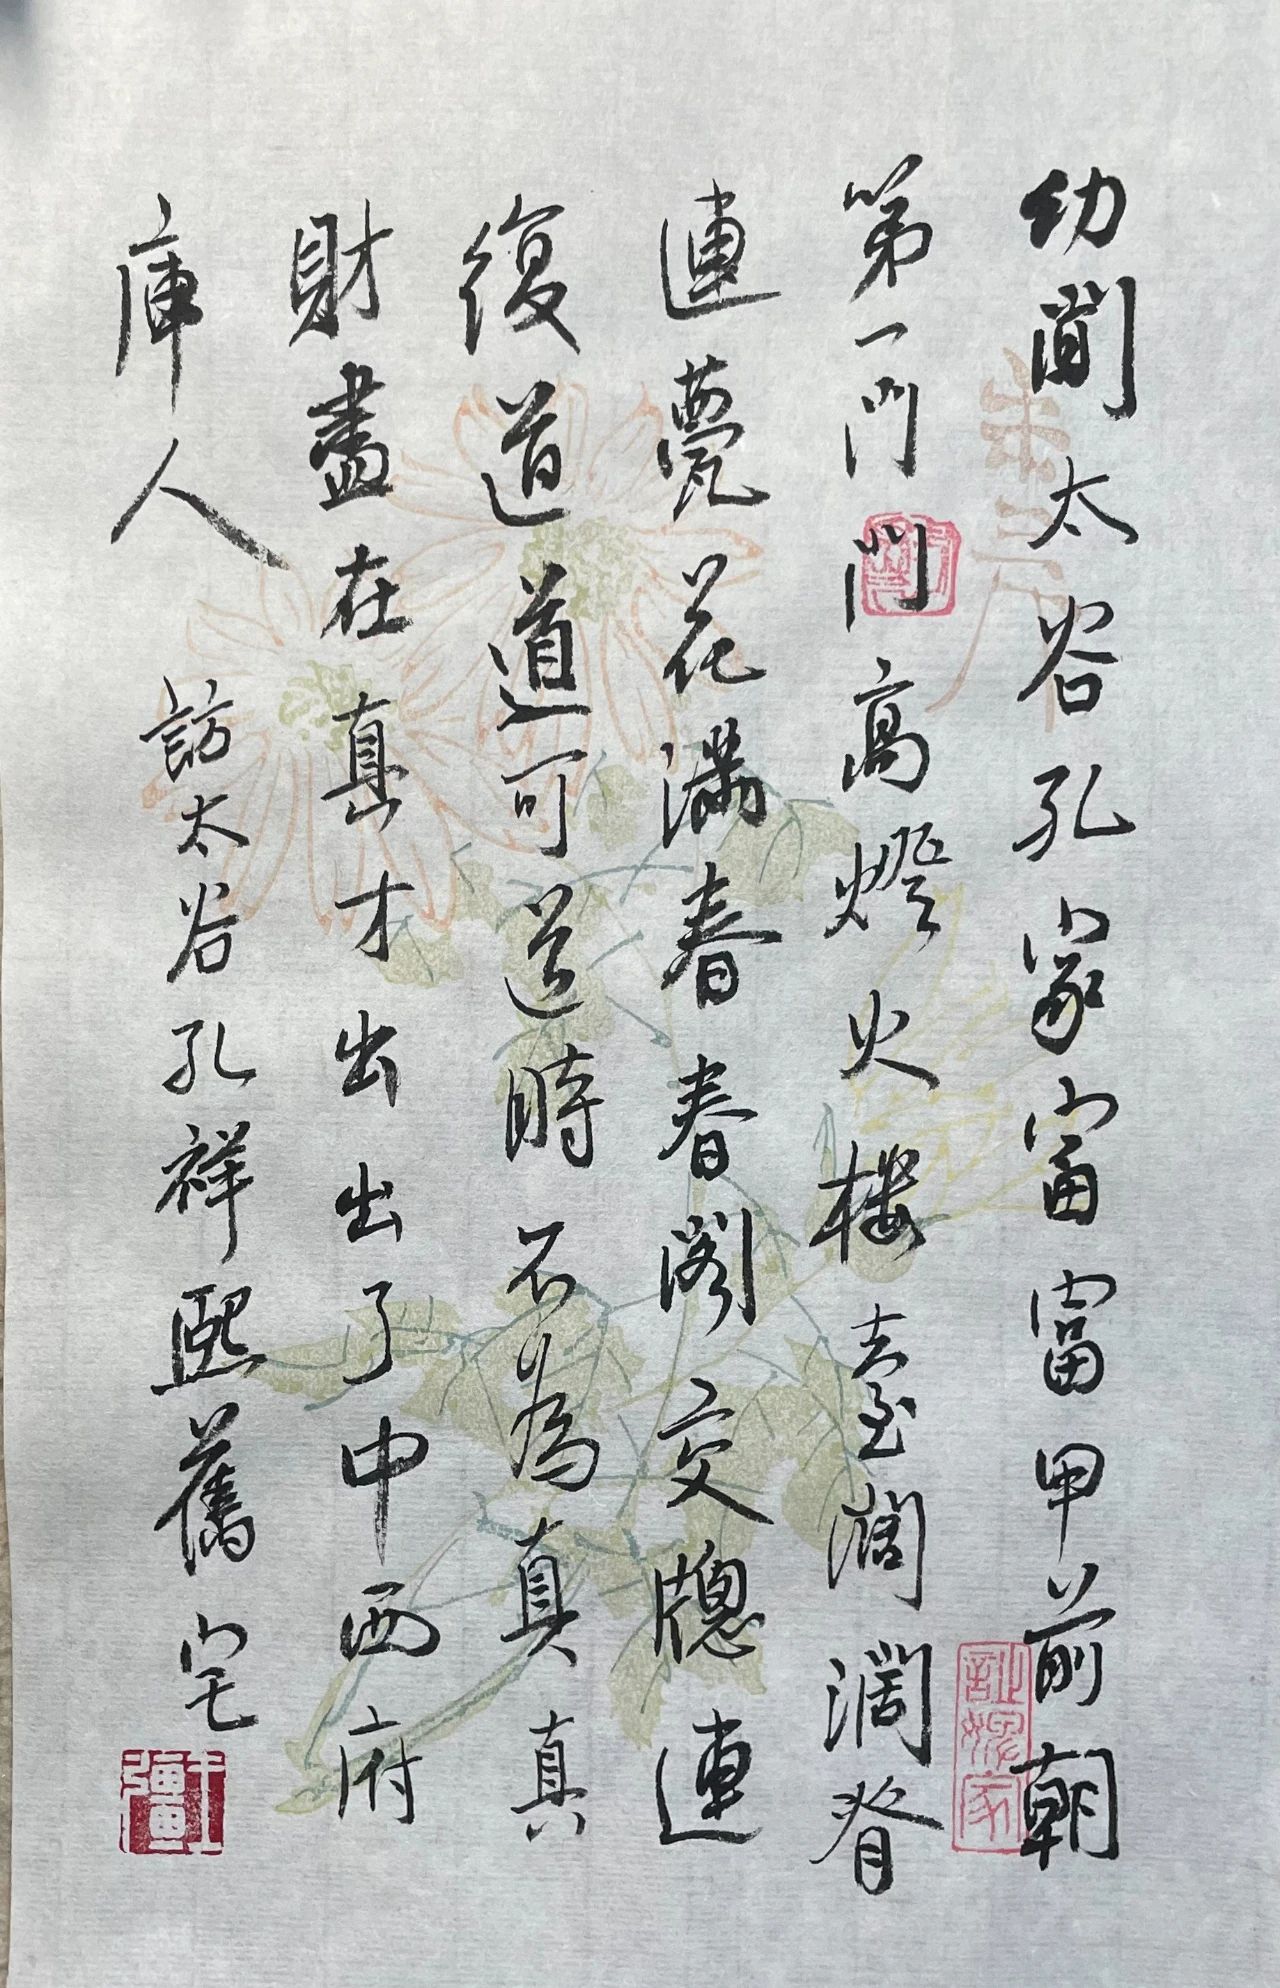 幼聞太谷孔家富富甲前朝
第一門門高燈火樓臺闊闊脊
連甍花滿春春閣交牕連
復道道可道時不為真真
財盡在真才出出了中西府
庫人
訪太谷孔祥熙舊宅